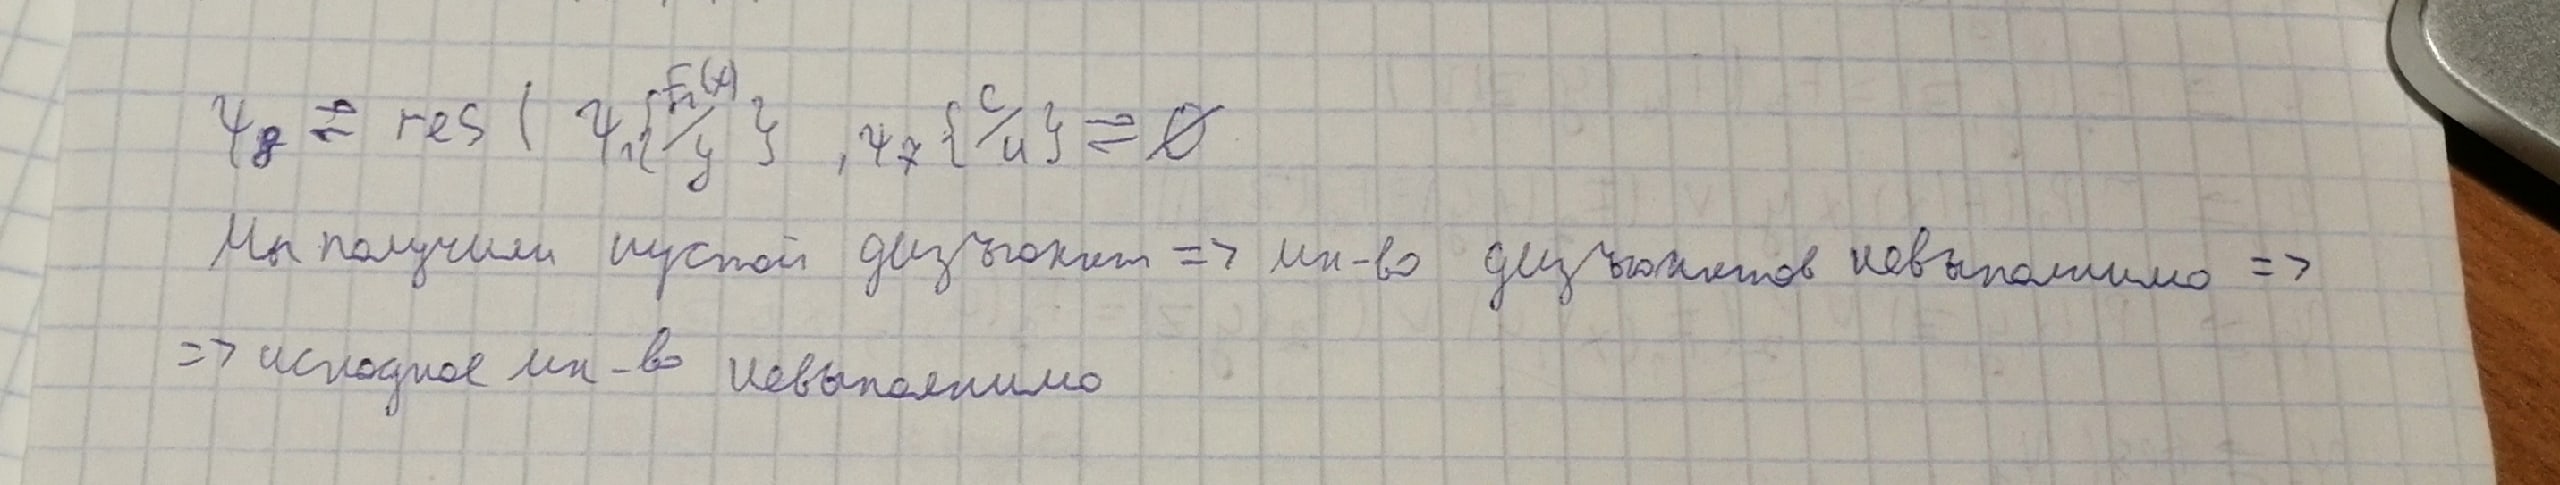 ψ₈ ⇌ res ( ψ₁{F₁(x)/y} , ψ₇{c/u} ⇌ ∅
Мы получили пустой дизъюнкт => мн-во дизъюнктов невыполнимо =>
=> исходное мн-во невыполнимо